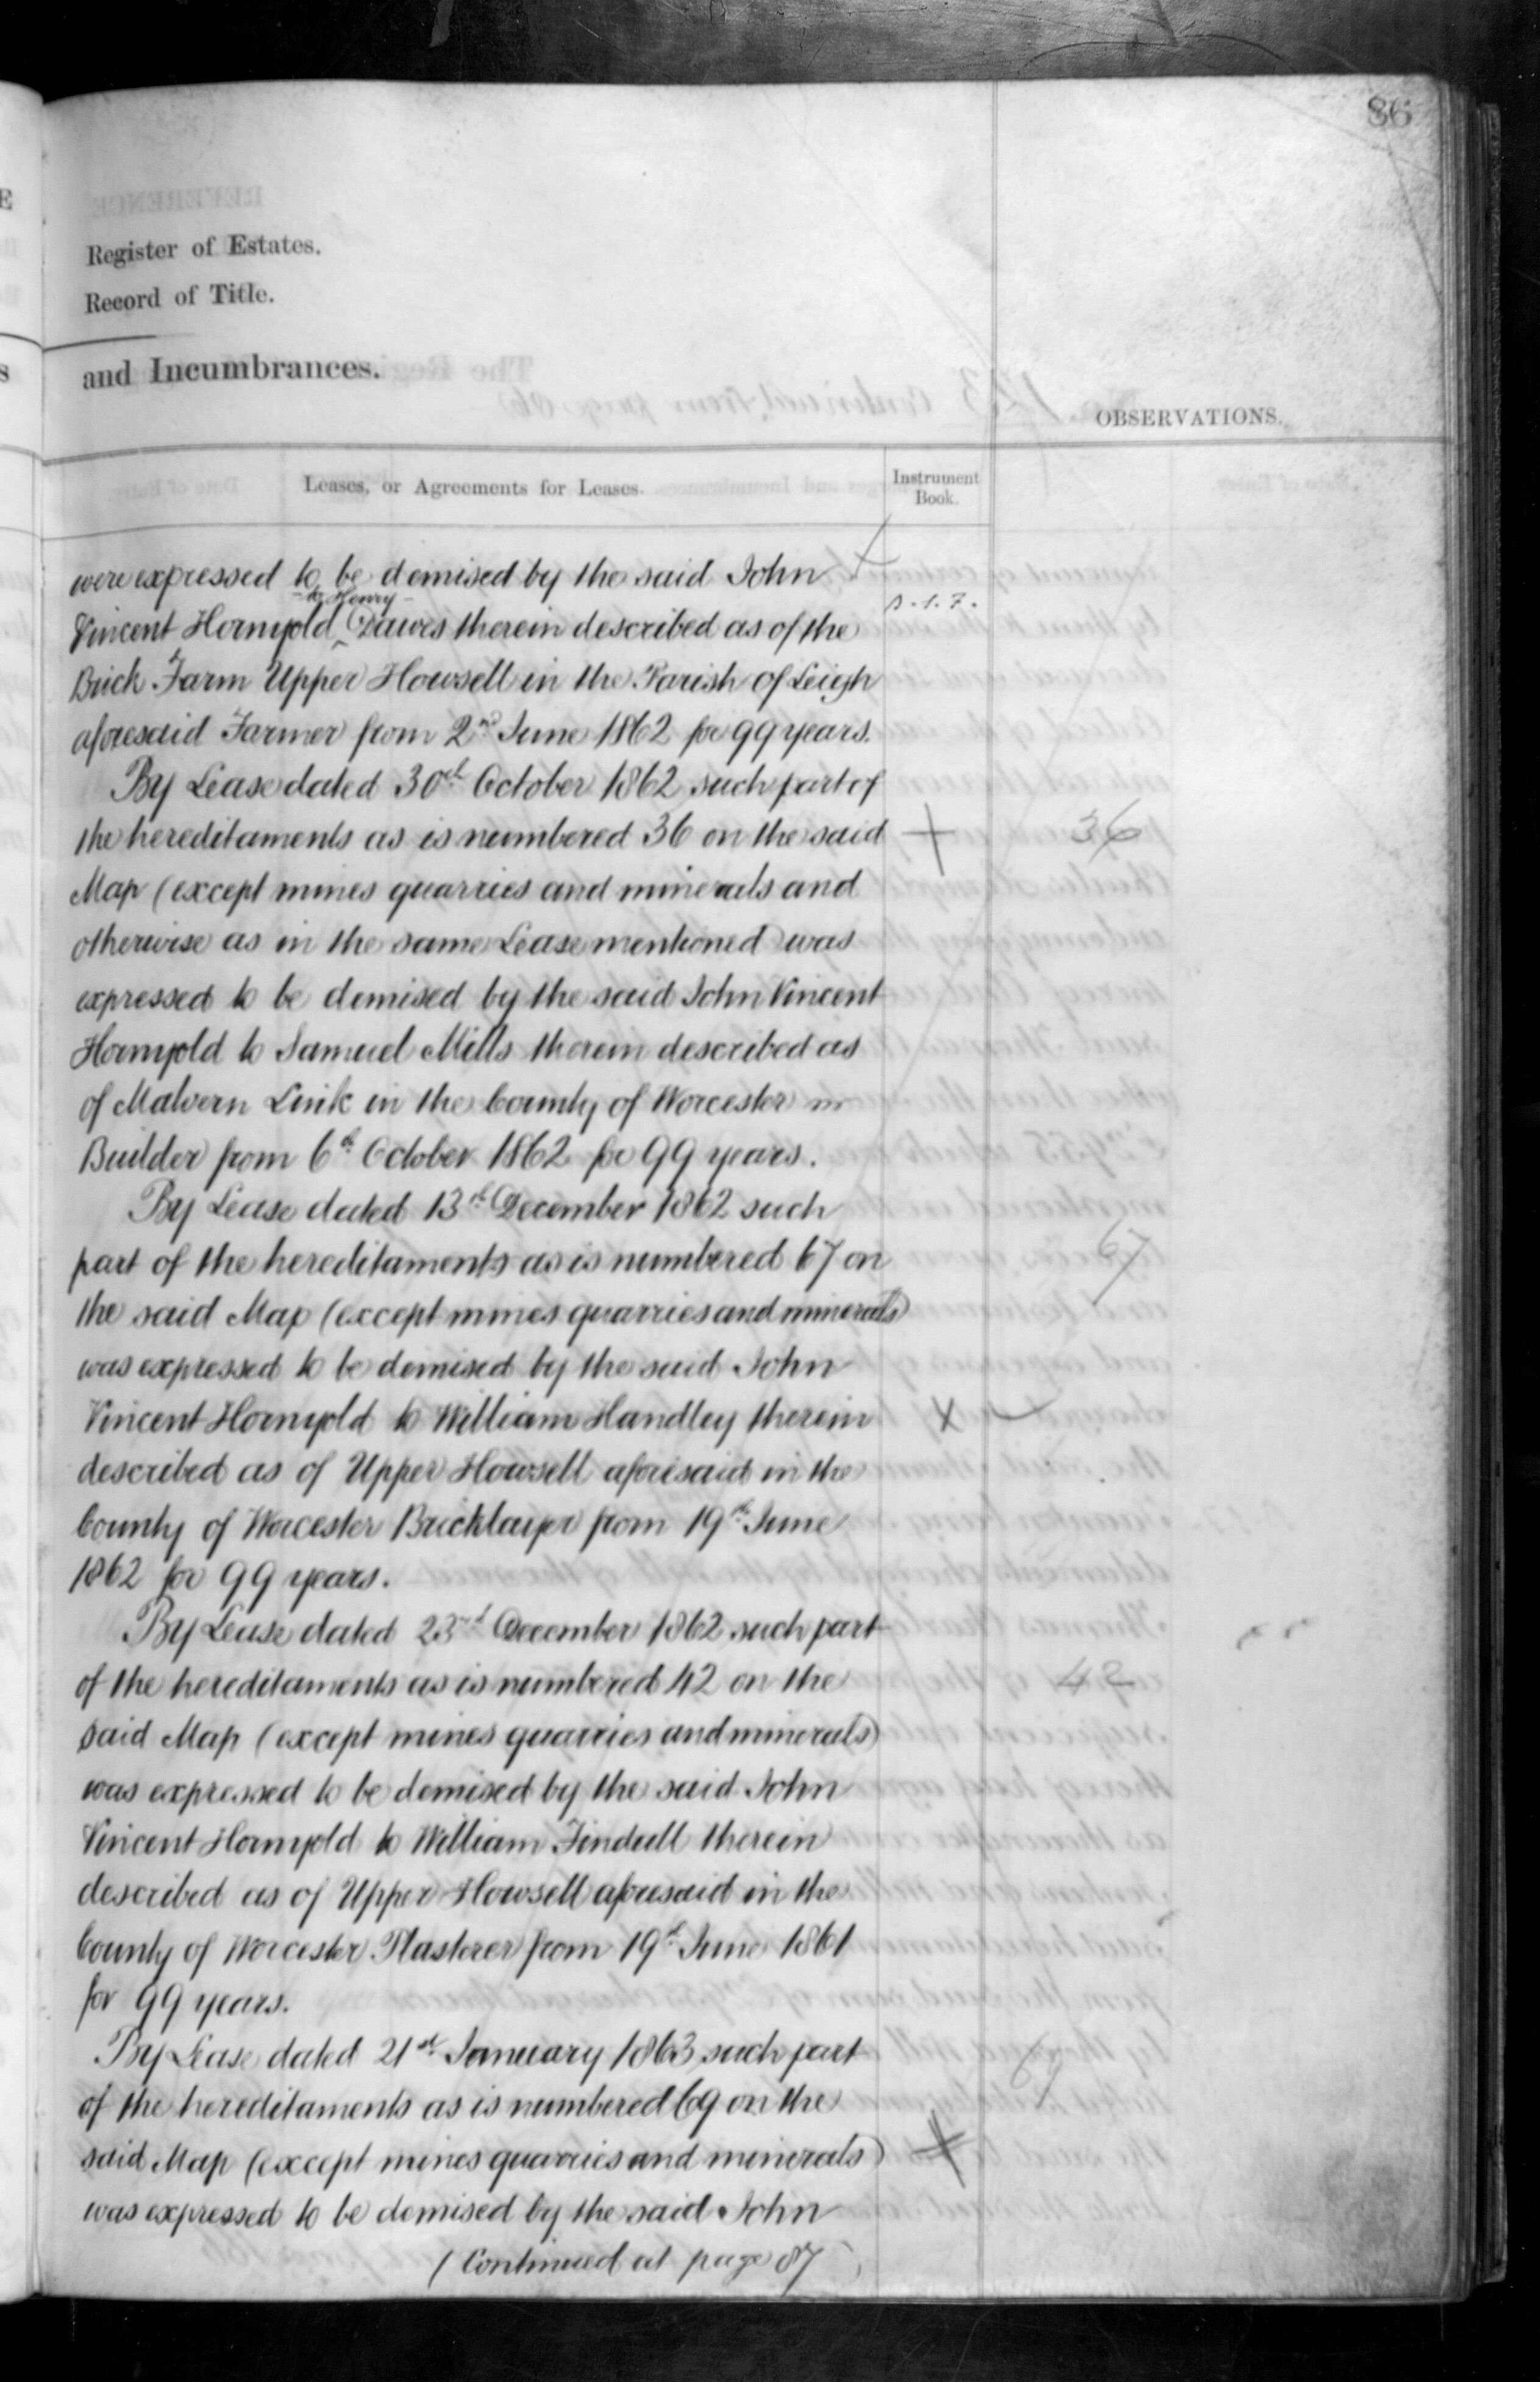 86
Register of Estates.
Record of Title.
and Incumbrances.
OBSERVATIONS.
Leases, or Agreements for Leases.
Instrument
Book.
were expressed to be demised by the said John
to Henry
Vincent Hornyold Dawes therein described as of the
Brick Farm Upper Howsell in the Parish of Leigh
aforesaid Farmer from 2nd June 1862 for 99 years.
By Lease dated 30th October 1862 such part of
the hereditaments as is numbered 36 on the said
36
Map (except mines quarries and minerals and
otherwise as in the same Lease mentioned) was
expressed to be demised by the said John Vincent
Hornyold to Samuel Mills therein described as
of Malvern Link in the County of Worcester
Builder from 6th October 1862 for 99 years.
By Lease dated 13th December 1862 such
part of the hereditaments as is numbered 67 on
67
the said Map (except mines quarries and minerals)
was expressed to be demised by the said John
Vincent Hornyold to William Handley therein
described as of Upper Howsell aforesaid in the
County of Worcester Bricklayer from 19th June
1862 for 99 years.
By Lease dated 23rd December 1862 such part
of the hereditaments as is numbered 42 on the
42
said Map (except mines quarries and minerals)
was expressed to be demised by the said John
Vincent Hornyold to William Tindall therein
described as of Upper Howsell aforesaid in the
County of Worcester Plasterer from 19th June 1861
for 99 years.
By Lease dated 21st January 1863 such part
of the hereditaments as is numbered 69 on the
69
said Map (except mines quarries and minerals)
was expressed to be demised by the said John
(Continued at page 87)